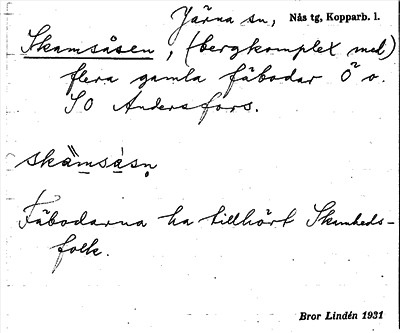 Järna sn, Nås tg, Kopparb. l.
Skamsåsen, (bergkomplex med)
flera gamla fäbodar Ö o.
SO Andersfors.
skämsåsn
Fäbodarna ha tillhört Skamheds-
folk.
Bror Lindén 1931